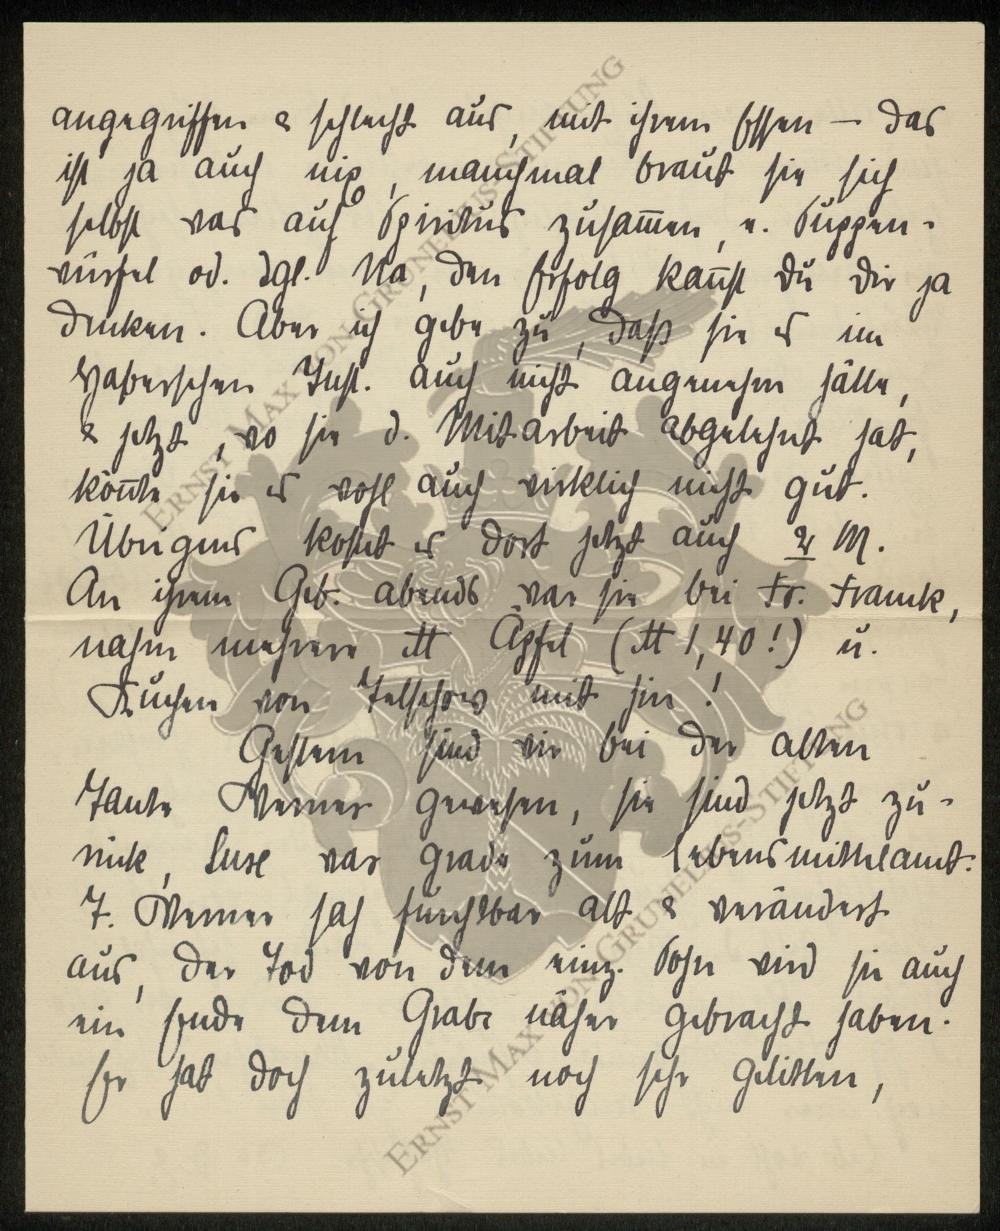 angegriffen & schlecht aus, mit ihrem Essen — das
ist ja auch nix, manchmal braut sie sich
selbst was auf Spiritus zusammen, e. Suppen-
würfel od. dgl. Na, den Erfolg kannst Du Dir ja
denken. Aber ich gebe zu, daß sie es im
Haberschen Inst. auch nicht angenehm hätte,
& jetzt, wo sie d. Mitarbeit abgelehnt hat,
könnte sie es wohl auch wirklich nicht gut.
Übrigens kostet es dort jetzt auch 2 M.
An ihrem Geb. abends war sie bei Fr. Franck,
nahm mehrere ℔ Äpfel (℔ 1,40!) u.
Kuchen von Telschow mit hin!
Gestern sind wir bei der alten
Tante Werner gewesen, sie sind jetzt zu-
rück, Luse war grade zum Lebensmittelamt.
T. Werner sah furchtbar alt & verändert
aus, der Tod von dem einz. Sohn wird sie auch
ein Ende dem Grabe näher gebracht haben.
Er hat doch zuletzt noch sehr gelitten,
ERNST MAX VON GRUNELIUS-STIFTUNG
ERNST MAX VON GRUNELIUS-STIFTUNG